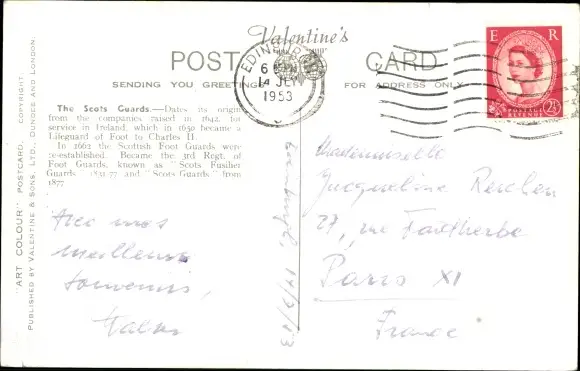 Valentine's
POST CARD
SENDING YOU GREETINGS
FOR ADDRESS ONLY
EDINBURGH
14 JLY
1953
E R
POSTAGE
REVENUE
2½
The Scots Guards.—Dates its origin
from the companies raised in 1642, for
service in Ireland, which in 1650 became a
Lifeguard of Foot to Charles II.
In 1662 the Scottish Foot Guards were
re-established. Became the 3rd Regt. of
Foot Guards, known as "Scots Fusilier
Guards" 1831-77 and "Scots Guards" from
1877
"ART COLOUR" POSTCARD. COPYRIGHT.
PUBLISHED BY VALENTINE & SONS, LTD., DUNDEE AND LONDON.
Avec mes
meilleurs
souvenirs,
Mademoiselle
Jacqueline
27, rue Faidherbe
Paris XI
France